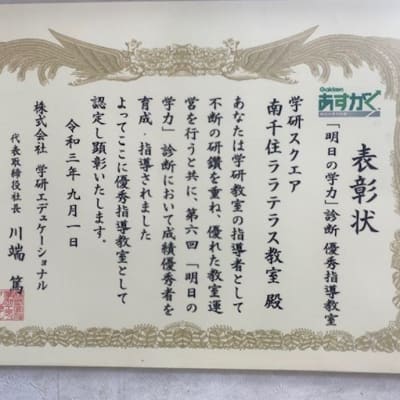 表彰状
Gakken
あすがく
「明日の学力」診断 優秀指導教室
学研スクエア
南千住ララテラス教室 殿
あなたは学研教室の指導者として
不断の研鑽を重ね、優れた教室運
営を行うと共に、第六回 「明日の
学力」診断において成績優秀者を
育成・指導されました
よってここに優秀指導教室として
認定し顕彰いたします。
令和三年九月一日
株式会社 学研エデュケーショナル
代表取締役社長 川端 篤